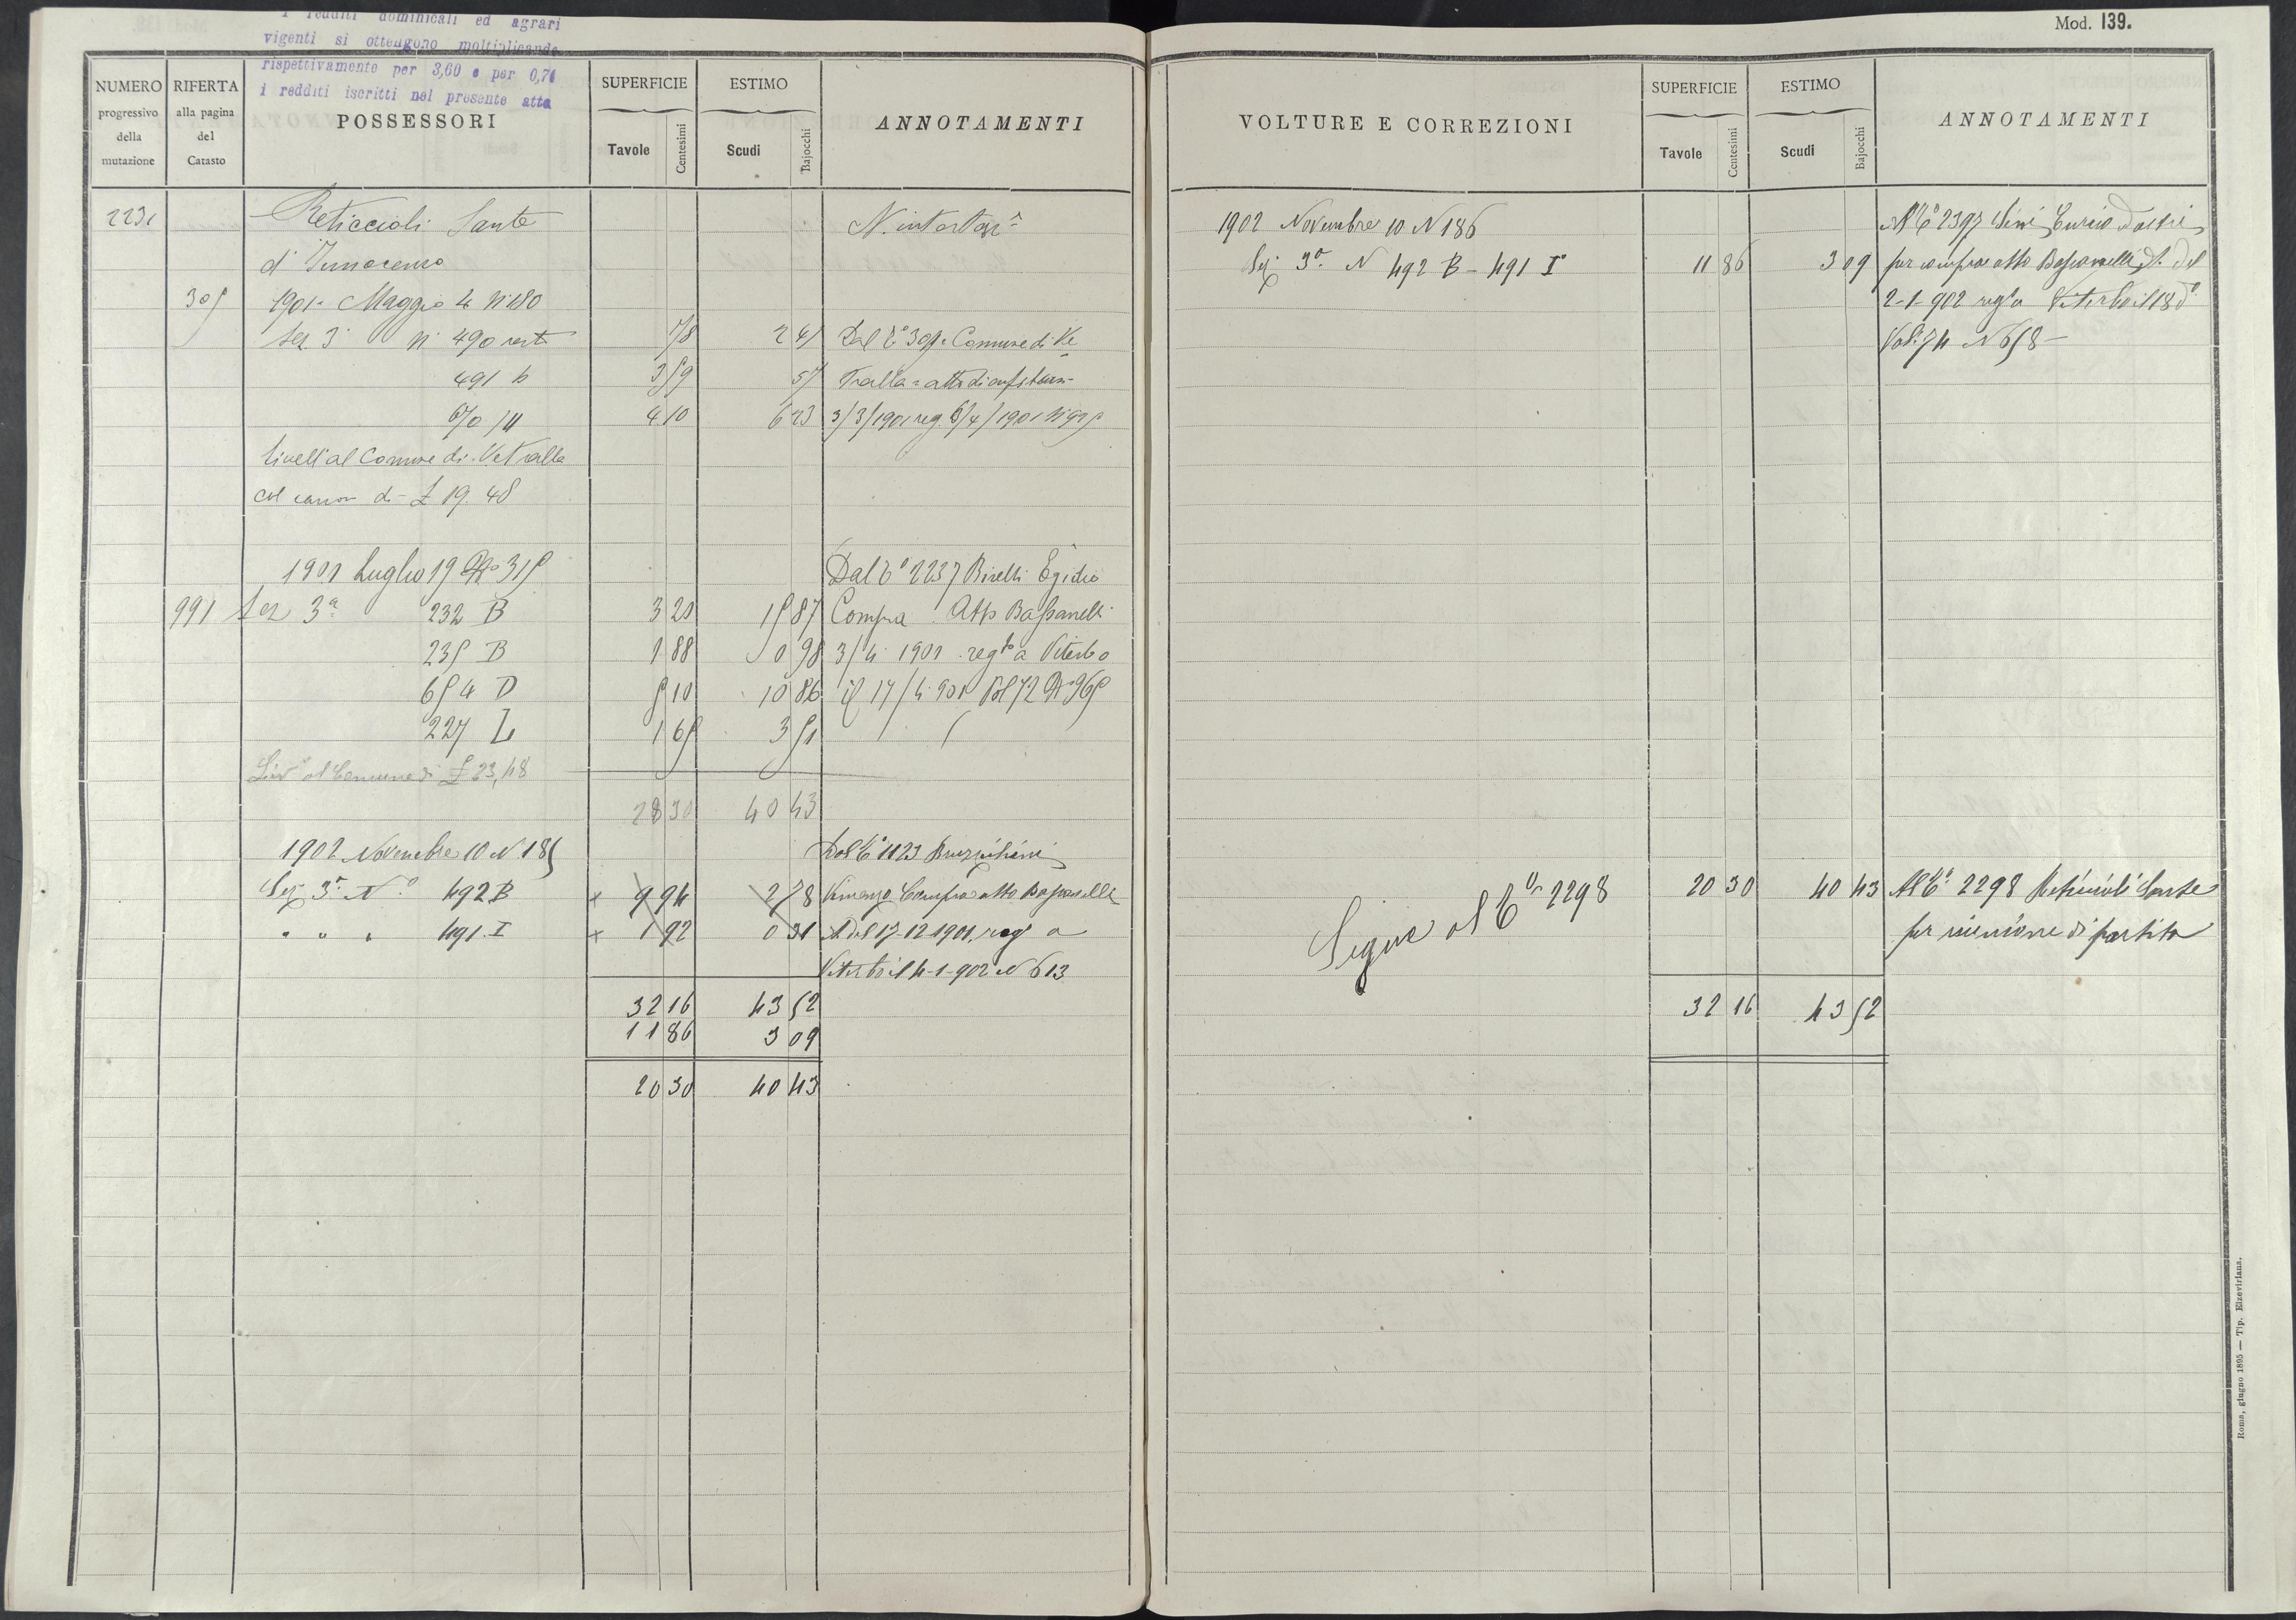 I redditi dominicali ed agrari
vigenti si ottengono moltiplicando
rispettivamente per 3,60 e per 0,74
i redditi iscritti nel presente atto
Mod. 139.
NUMERO progressivo della mutazione
RIFERTA alla pagina del Catasto
POSSESSORI
SUPERFICIE
Tavole Centesimi
ESTIMO
Scudi Bajocchi
ANNOTAMENTI
2231 Reticcioli Sante
d'Innocenzo
305 1901 Maggio 4 N 180
Sez 3ª N 490 78 2 41 Dal Comune di Ve
491 b 3 59 57 tralla
670 / 4 10 6 23 3/3/1901 reg. 6/4/1901
livell al Comune di Vetralla
col canon di £ 19.48
1901 Luglio 19 Nº 315 Dal Tº 2237 Birelli Egidio
991 Sez 3ª 232 B 3 20 15 87 Compra Atto Bassanelli
235 B 1 88 0 98 3/4 1901 regto a Viterbo
654 D 5 10 10 86 il 17/4 901 Vol 72 Nº 965
227 L 1 65 3 51
Livº al Comune di £ 23,48
28 30 40 43
1902 Novembre 10 N 185 Dal Tº 1123
Sez 3ª Nº 492 B x 9 94 2 78 Compra atto Bassanelli
" " " 491 I x 1 92 0 31 del 17-12-1901, reg a
Viterbo il 4-1-902 N 613
32 16 43 52
11 86 3 09
20 30 40 43
VOLTURE E CORREZIONI
SUPERFICIE
Tavole Centesimi
ESTIMO
Scudi Bajocchi
ANNOTAMENTI
1902 Novembre 10 N 186 Al Tº 2397
Sez 3ª N 492 B - 491 I 11 86 3 09 per compra atto Bassanelli del
2-1-902 regº a Viterbo il 18 dº
Vol. 74 N 658
Segue al Tº 2298 20 30 40 43 Al Tº 2298 Reticcioli Sante
per riunione di partita
32 16 43 52
Roma, giugno 1895 — Tip. Elzeviriana.